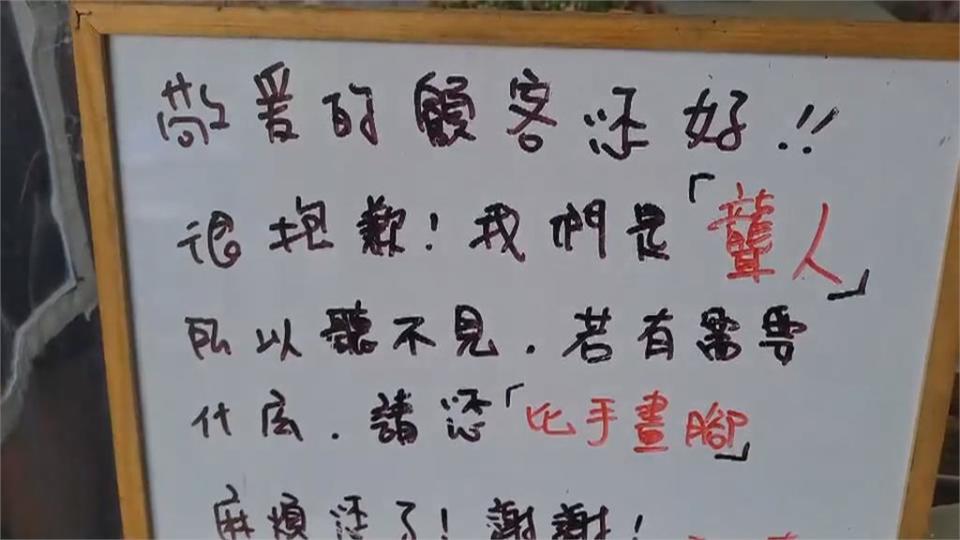 敬愛的顧客您好!!
很抱歉!我們是「聾人」
所以聽不見.若有需要
什麼.請您「比手畫腳」
麻煩您了!謝謝!